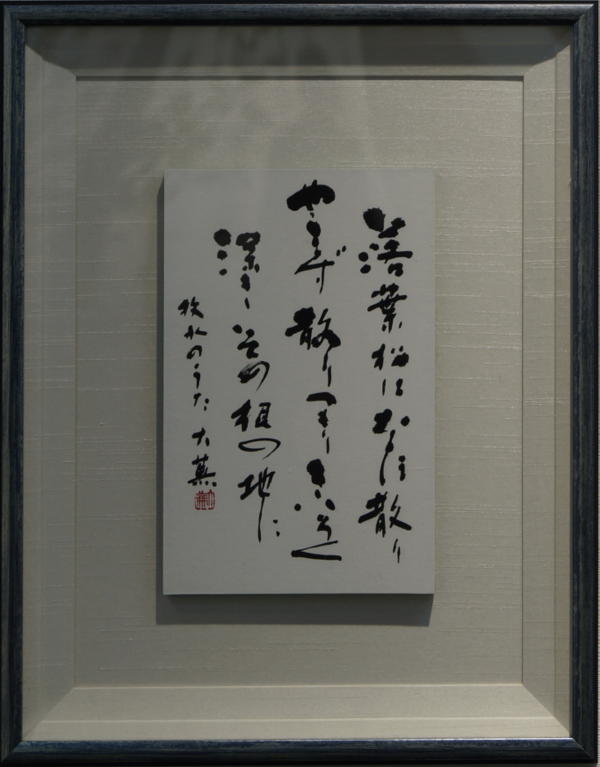 落葉松は散り
やまず散りつもり
深きその根の地に
牧水のうた 大蕪